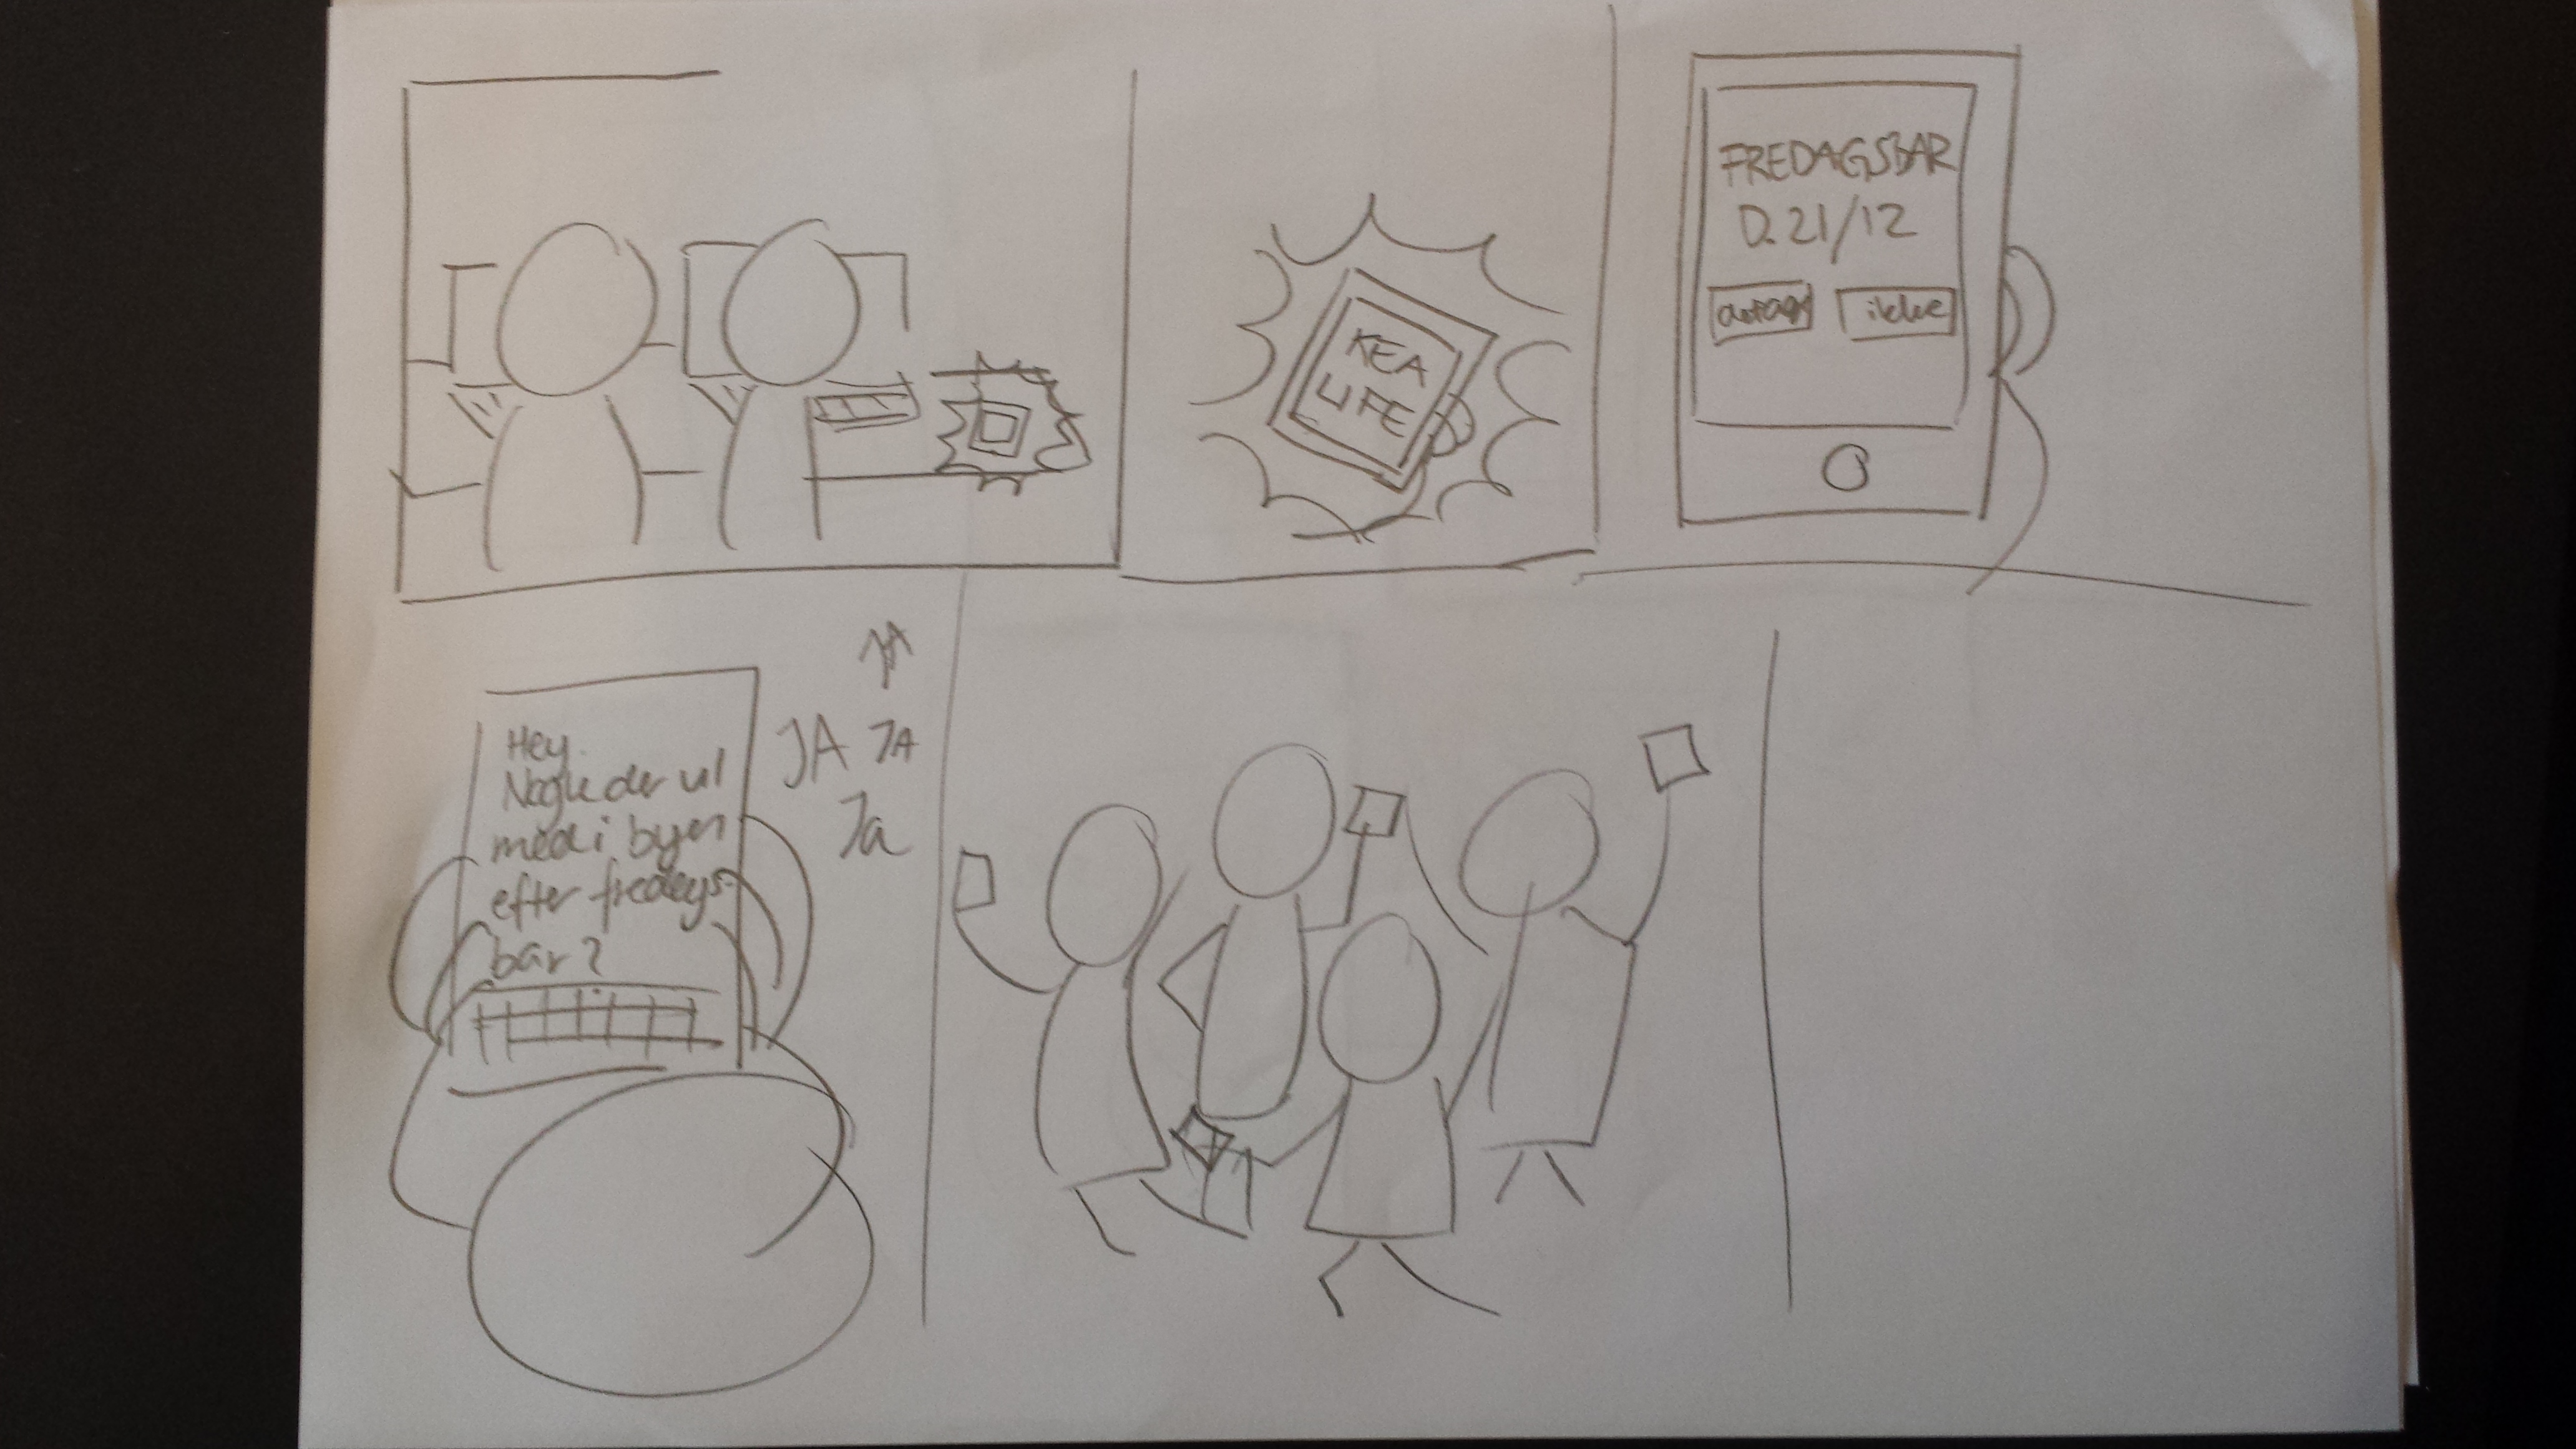 KEA
LIFE
FREDAGSBAR
D. 21/12
ikke
Hey.
Nogle der vil
med i byen
efter fredags-
bar?
JA
JA JA
Ja